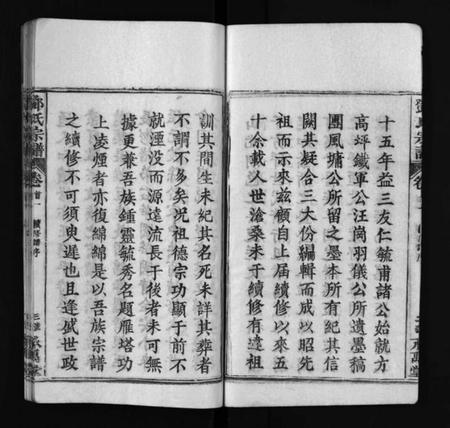 十五年益三友仁毓甫諸公始就方
高坪鐵軍公汪崗羽儀公所遺墨稿
團風墉公所留之墨本所有紀其信
闕其疑合三大份編輯而成以昭先
祖而示來茲顧自上屆續修以來五
十余載人世滄桑未于續修有違祖
訓其間生未紀其名死未詳其葬者
不謂不多矣況祖德宗功顯于前不
就湮没而源遠流長于後者未可無
據更兼吾族鍾靈毓秀名題雁塔功
上凌煙者亦復綿綿是以吾族宗譜
之續修不可須臾遲也且逢盛世政
鄧氏宗譜 卷首一 續修譜序